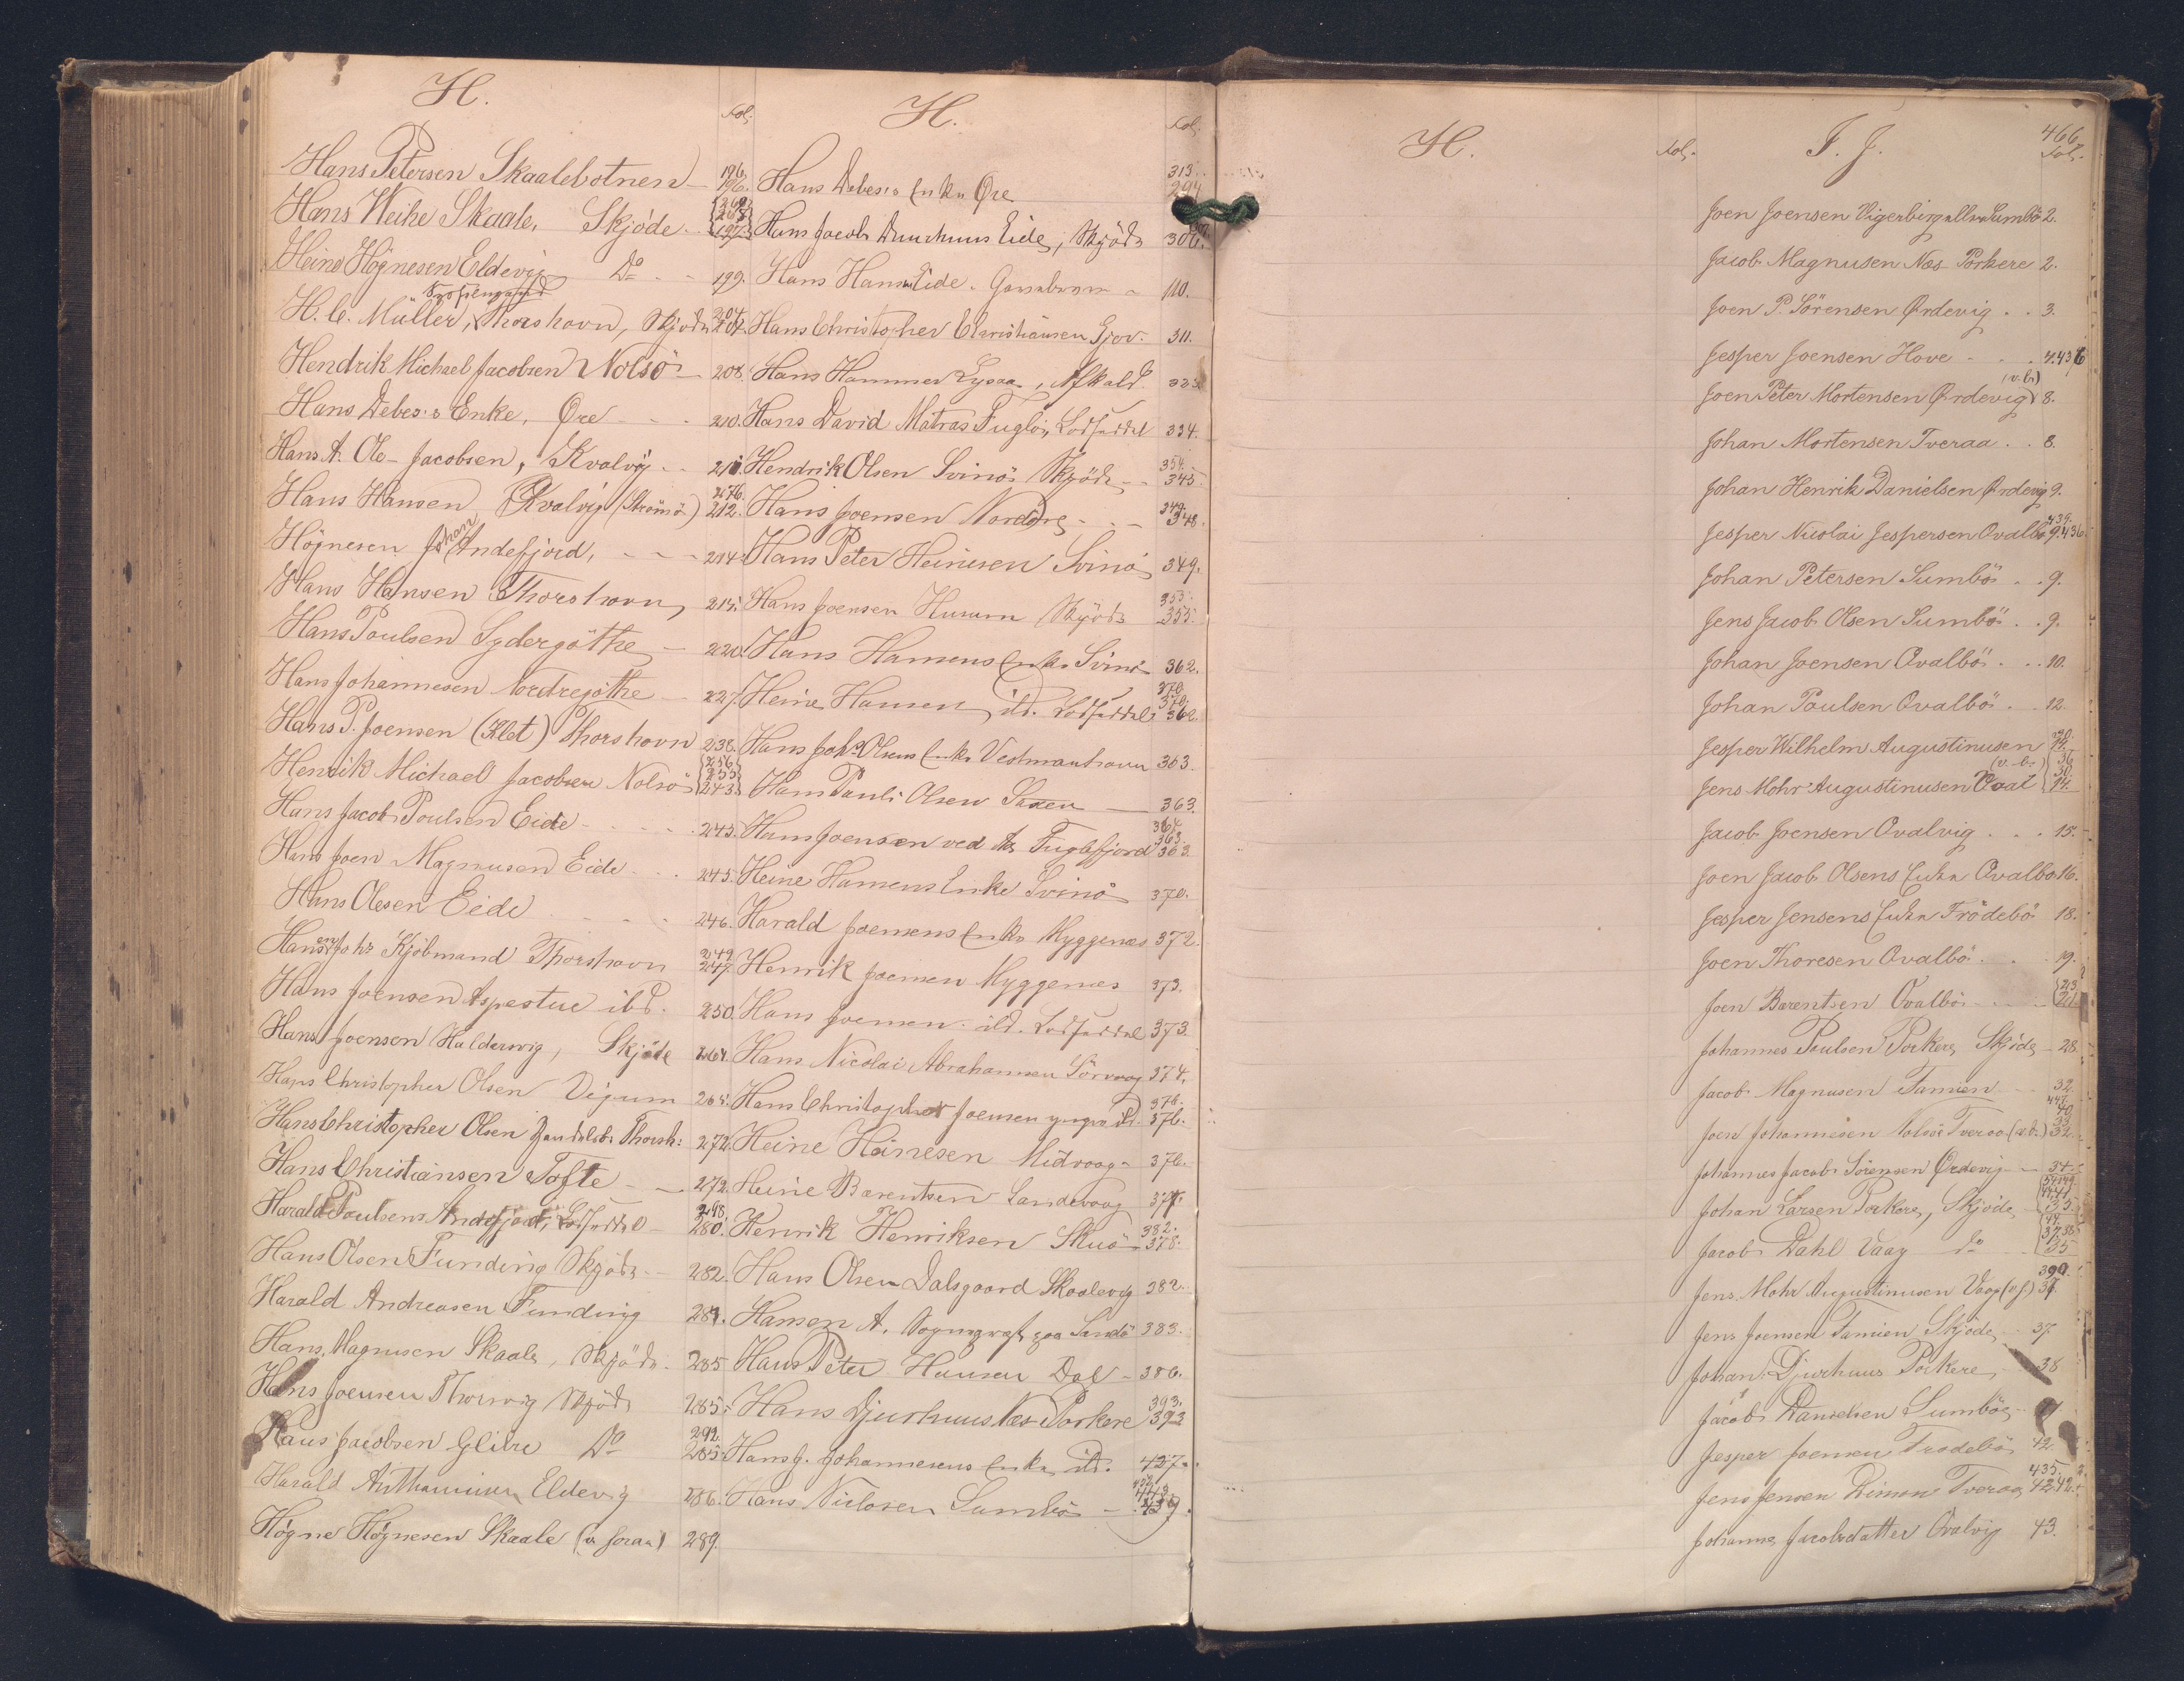 H.
Fol.
Hans Petersen Skaalebotnen — 196. 196.
Hans Weihe Skaale, Skjöde. 197.
Heine Högnesen Eldevig Do - - 199.
H. C. Müller, Thorshavn, Skjöde 204. 204.
Hendrik Michael Jacobsen Nolsö — 208.
Hans Debes's Enke, Øre - - 210.
Hans A. Ole-Jacobsen, Kvalvig - - 211.
Hans Hansen, Kvalvig (Strömö) 276. 212.
Högnesen Johan Andefjord, - - - 214.
Hans Hansen Thorshavn, 215.
Hans Poulsen Sydergöthe — 220.
Hans Johannesen Nordregöthe — 227.
Hans P. Joensen (Klet) Thorshavn 238.
Henrik Michael Jacobsen Nolsö 256. 255. 243.
Hans Jacob Poulsen Eide - - - - 245.
Hans Joen Magnusen Eide - - - 245.
Hans Olesen Eide - - - - 246.
Hansen Johs Kjöbmand Thorshavn 249. 247.
Hans Joensen Aspestue ibd. 250.
Hans Joensen Haldersvig, Skjöde 264.
Hans Christopher Olsen Vigum 265.
Hans Christopher Olsen Thorsh: 272.
Hans Christiansen Tofte - - 272.
Harald Poulsens Andefjord, Lodseddel — 298. 280.
Hans Olsen Funding Skjöde — 282.
Harald Andreasen Funding 284.
Hans Magnusen Skaale, Skjöde. 285.
Hans Joensen Thorsvig Skjöde 285.
Hans Jacobsen Glibre Do 292. 285.
Harald Anthoniussen Eldevig 286.
Högne Högnesen Skaale 289.
H.
Fol.
Hans Debes's Enke Øre 313. 294
Hans Jacob Duurhuus Eide, Skjöde 306.
Hans Hansen Eide - 110.
Hans Christopher Christiansen Gjov. 311.
Hans Hammer Lysaa, Afkald.
Hans David Matras Fuglö, Lodseddel 334.
Hendrik Olsen Svinö, Skjöde - - 354. 345.
Hans Joensen Norddre - - — 349. 348.
Hans Peter Heinesen Svinö 349.
Hans Joensen Husum Skjöde 353. 355.
Hans Hansens Enke Svinö 362.
Heine Hansen ibd. Lodseddel 370. 370. 362.
Hans Johs Olsens Enke Vestmanhavn 363.
Hans Pauli Olsen Saxen — 363.
Hans Joensen ved Aa Fuglefjord 364. 363. 363.
Heine Hansens Enke Svinö 370.
Harald Joensens Enke Myggenæs 372.
Henrik Joensen Myggenæs 373.
Hans Joensen ibd. Lodseddel 373.
Hans Nicolai Abrahamsen Sörvaag 374.
Hans Christopher Joensen yngre ibd. 376. 376.
Heine Heinesen Midvaag - 376.
Heine Barentsen Sandevaag 377.
Henrik Henriksen Skuö 382. 378.
Hans Olsen Dalsgaard Skaalevig 382.
Hansen A. Sognepræst paa Sandö 383.
Hans Peter Hansen Dal - 386.
Hans Djurhuus Næs Porkere 393. 392
Hans J. Johannesens Enke ibd. 427.
Hans Niclasen Sumbö — 439.
H.
Fol.
I. J.
466
Fol.
Joen Joensen Sumbö 2.
Jacob Magnusen Næs Porkere 2.
Joen P. Sörensen Ördevig . . 3.
Jesper Joensen Hove - - . 4. 436
Joen Peter Mortensen Ördevig (v. b.) 8.
Johan Mortensen Tveraa . . 8.
Johan Henrik Danielsen Ördevig 9.
Jesper Nicolai Jespersen Qvalbö 439. 9. 436.
Johan Petersen Sumbö . . 9.
Jens Jacob Olsen Sumbö . . 9.
Johan Joensen Qvalbö . . . 10.
Johan Poulsen Qvalbö . . 12.
Jesper Wilhelm Augustinusen 14.
Jens Mohr Augustinusen Qval (v. b.) 36. 30. 14.
Jacob Joensen Qvalvig . . . 15.
Joen Jacob Olsens Enke Qvalbö 16.
Jesper Jensens Enke Frödebö 18.
Joen Thoresen Qvalbö . . 19.
Joen Barentsen Qvalbö - - -
Johannes Poulsen Porkere Skjöde — 28.
Jacob Magnusen Famien - - 32.
Joen Johannesen Nolsöe Tveraa (v. b.) 32.
Johannes Jacob Sörensen Ördevig - - 34.
Johan Larsen Porkere, Skjöde 35.
Jacob Dahl Vaag do - - 35
Jens Mohr Augustinusen Vaag 390. 37.
Jens Joensen Famien Skjöde, 37.
Johan Djurhuus Porkere, 38
Jacob Danielsen Sumböe
Jesper Joensen Frodebö 42.
Jens Jensen Dimon Tveraa 435. 42.
Johanne Jacobsdatter Qvalvig 43.